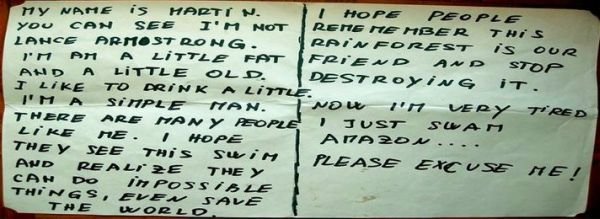 MY NAME IS MARTIN.
YOU CAN SEE I'M NOT
LANCE ARMOSTRONG.
I'M AM A LITTLE FAT
AND A LITTLE OLD.
I LIKE TO DRINK A LITTLE.
I'M A SIMPLE MAN.
THERE ARE MANY PEOPLE
LIKE ME. I HOPE
THEY SEE THIS SWIM
AND REALIZE THEY
CAN DO IMPOSSIBLE
THINGS, EVEN SAVE
THE WORLD.
I HOPE PEOPLE
REMEMEMBER THIS
RAINFOREST IS OUR
FRIEND AND STOP
DESTROYING IT.
NOW I'M VERY TIRED
I JUST SWAM
AMAZON....
PLEASE EXCUSE ME!